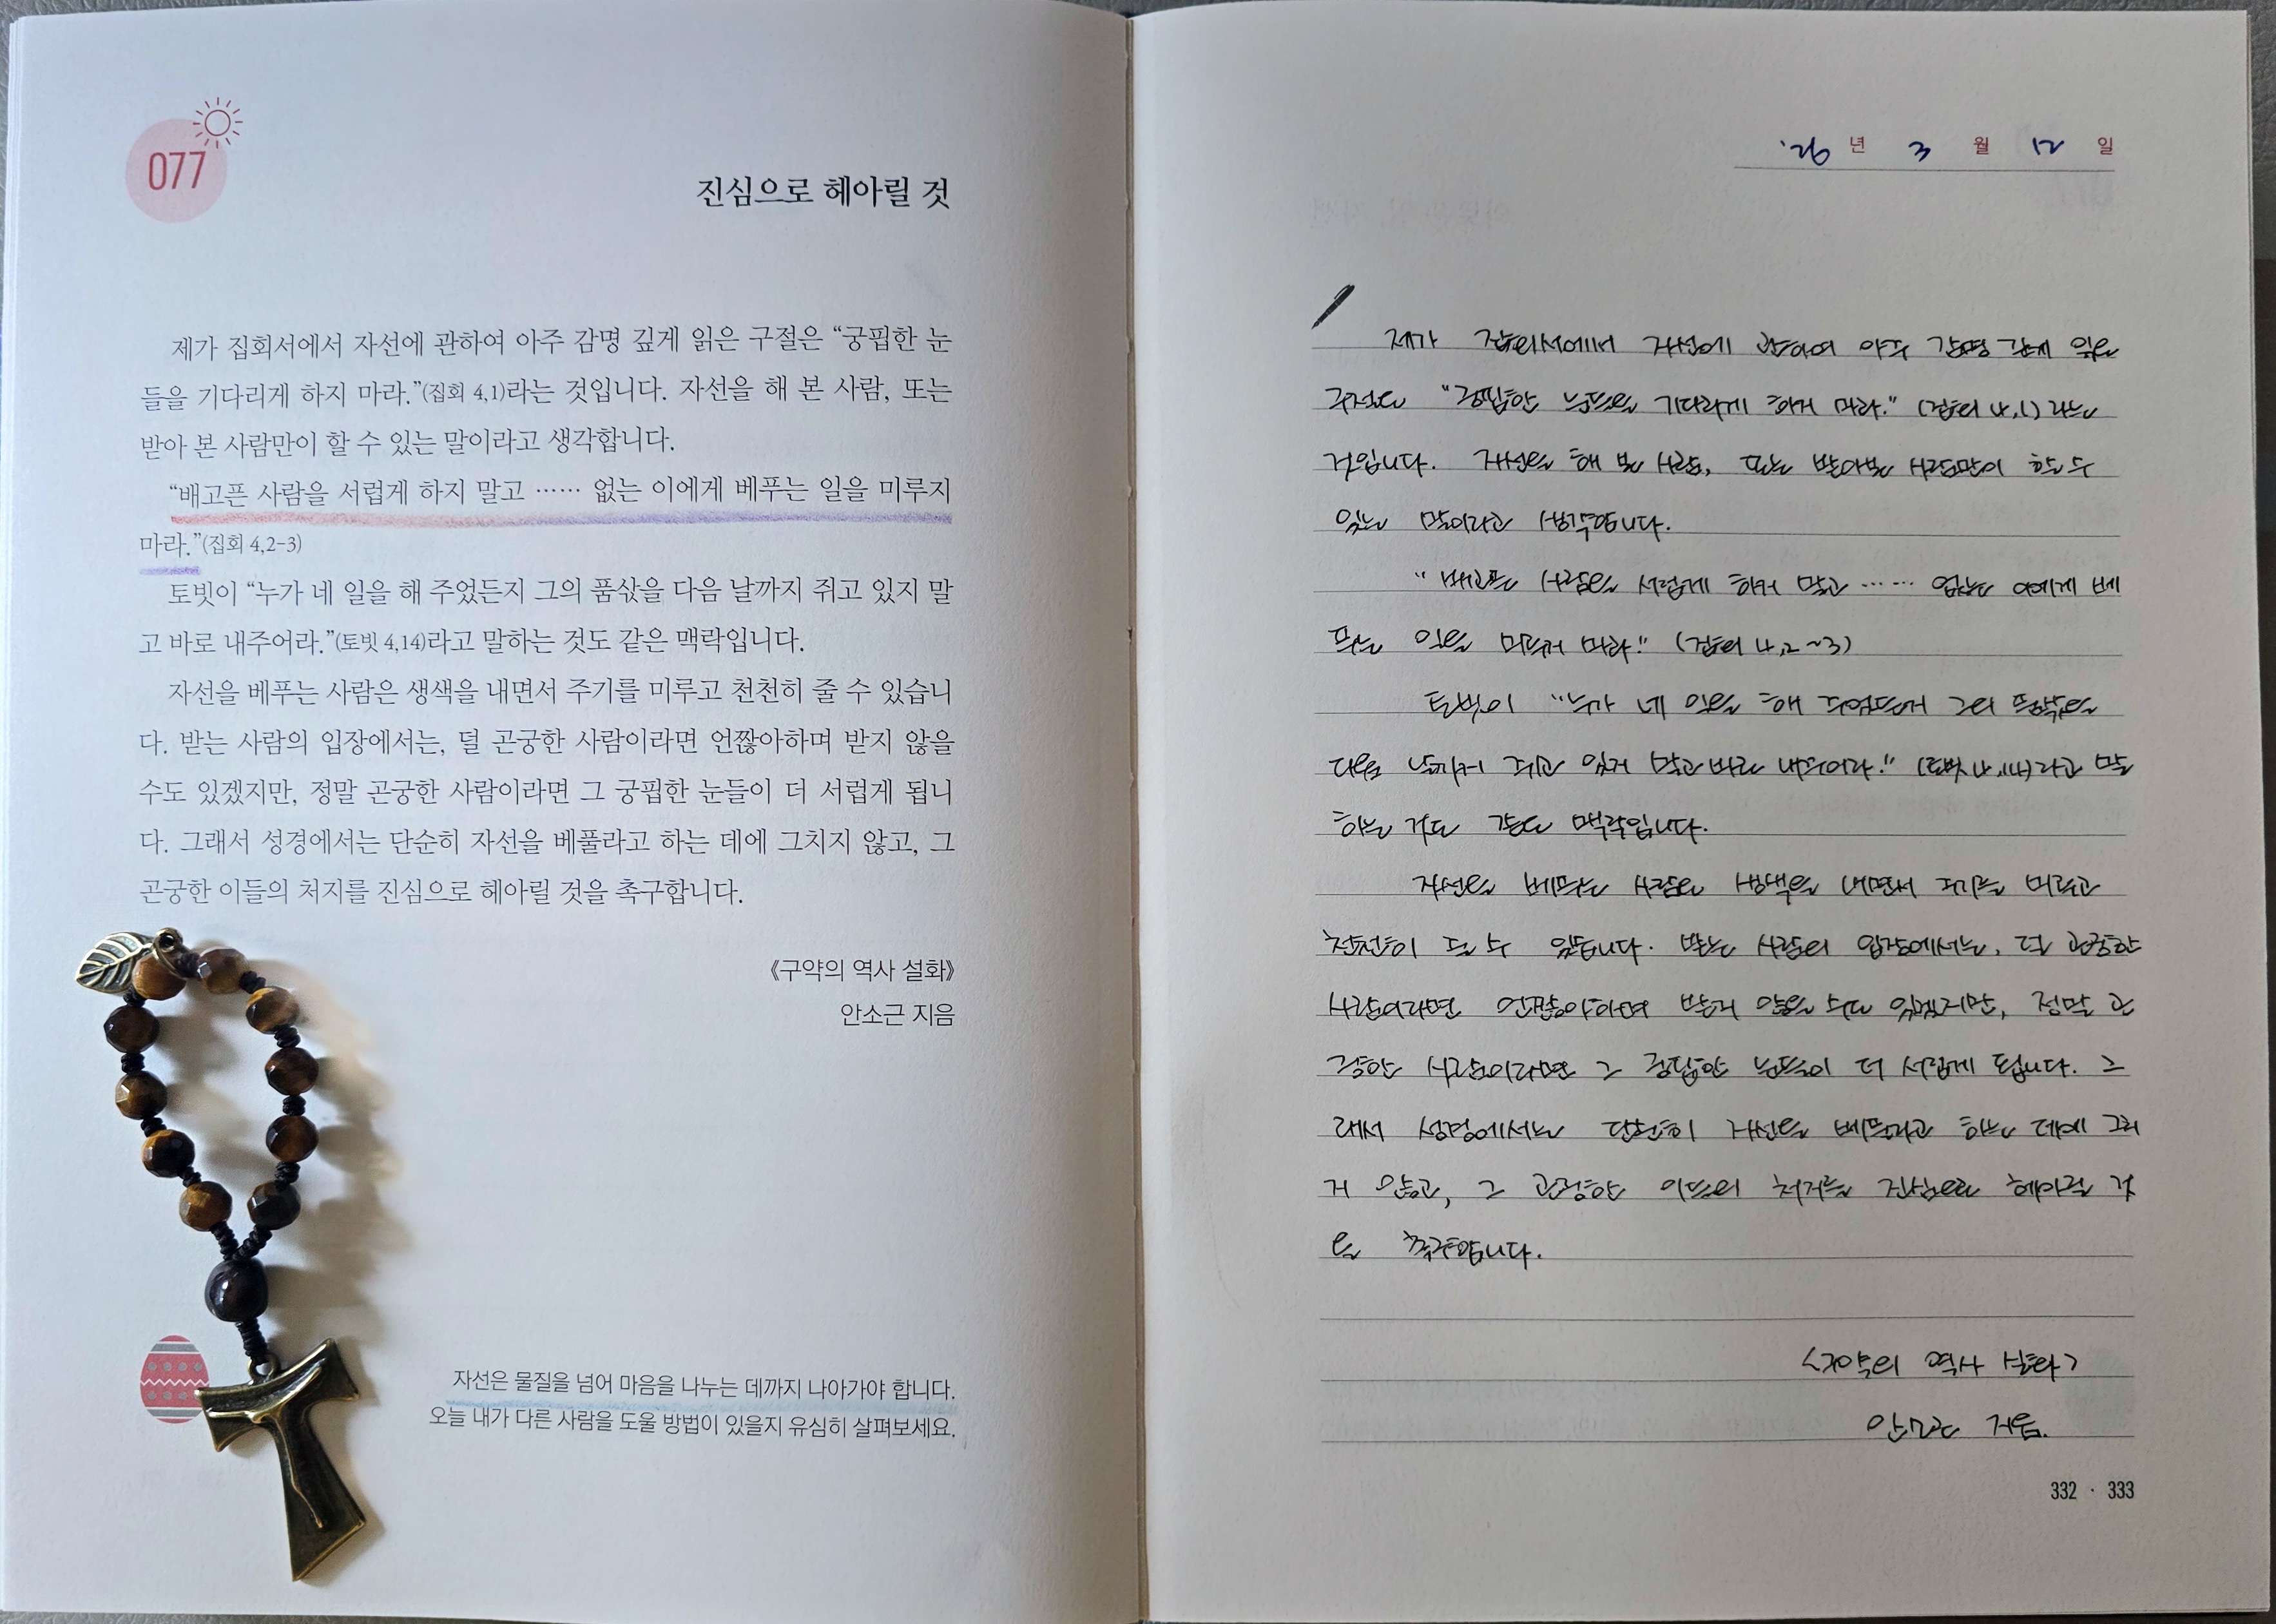 077
진심으로 헤아릴 것
제가 집회서에서 자선에 관하여 아주 감명 깊게 읽은 구절은 “궁핍한 눈
들을 기다리게 하지 마라.”(집회 4,1)라는 것입니다. 자선을 해 본 사람, 또는
받아 본 사람만이 할 수 있는 말이라고 생각합니다.
“배고픈 사람을 서럽게 하지 말고 …… 없는 이에게 베푸는 일을 미루지
마라.”(집회 4,2-3)
토빗이 “누가 네 일을 해 주었든지 그의 품삯을 다음 날까지 쥐고 있지 말
고 바로 내주어라.”(토빗 4,14)라고 말하는 것도 같은 맥락입니다.
자선을 베푸는 사람은 생색을 내면서 주기를 미루고 천천히 줄 수 있습니
다. 받는 사람의 입장에서는, 덜 곤궁한 사람이라면 언짢아하며 받지 않을
수도 있겠지만, 정말 곤궁한 사람이라면 그 궁핍한 눈들이 더 서럽게 됩니
다. 그래서 성경에서는 단순히 자선을 베풀라고 하는 데에 그치지 않고, 그
곤궁한 이들의 처지를 진심으로 헤아릴 것을 촉구합니다.
《구약의 역사 설화》
안소근 지음
자선은 물질을 넘어 마음을 나누는 데까지 나아가야 합니다.
오늘 내가 다른 사람을 도울 방법이 있을지 유심히 살펴보세요.
'26 년 3 월 12 일
제가 집회서에서 자선에 관하여 아주 감명 깊게 읽은
구절은 "궁핍한 눈들을 기다리게 하지 마라." (집회 4,1) 라는
것입니다. 자선을 해 본 사람, 또는 받아본 사람만이 할 수
있는 말이라고 생각합니다.
"배고픈 사람을 서럽게 하지 말고 …… 없는 이에게 베
푸는 일을 미루지 마라." (집회 4,2~3)
토빗이 "누가 네 일을 해 주었든지 그의 품삯을
다음 날까지 쥐고 있지 말고 바로 내주어라." (토빗 4,14)라고 말
하는 것도 같은 맥락입니다.
자선을 베푸는 사람은 생색을 내면서 주기를 미루고
천천히 줄 수 있습니다. 받는 사람의 입장에서는, 덜 곤궁한
사람이라면 언짢아하며 받지 않을 수도 있겠지만, 정말 곤
궁한 사람이라면 그 궁핍한 눈들이 더 서럽게 됩니다. 그
래서 성경에서는 단순히 자선을 베풀라고 하는 데에 그치
지 않고, 그 곤궁한 이들의 처지를 진심으로 헤아릴 것
을 촉구합니다.
<구약의 역사 설화>
안소근 지음.
332 · 333